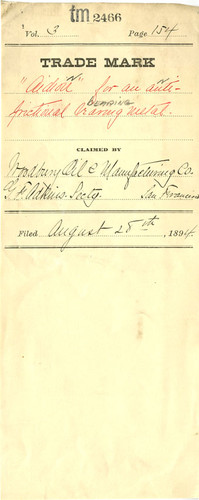 tm 2466
Vol. 3 Page 154
TRADE MARK
for an anti-
BEARING
frictional bearing metal.
CLAIMED BY
Woodbury Oil & Manufacturing Co.
Adkins Secty. San Francisco
Filed August 28th, 1894